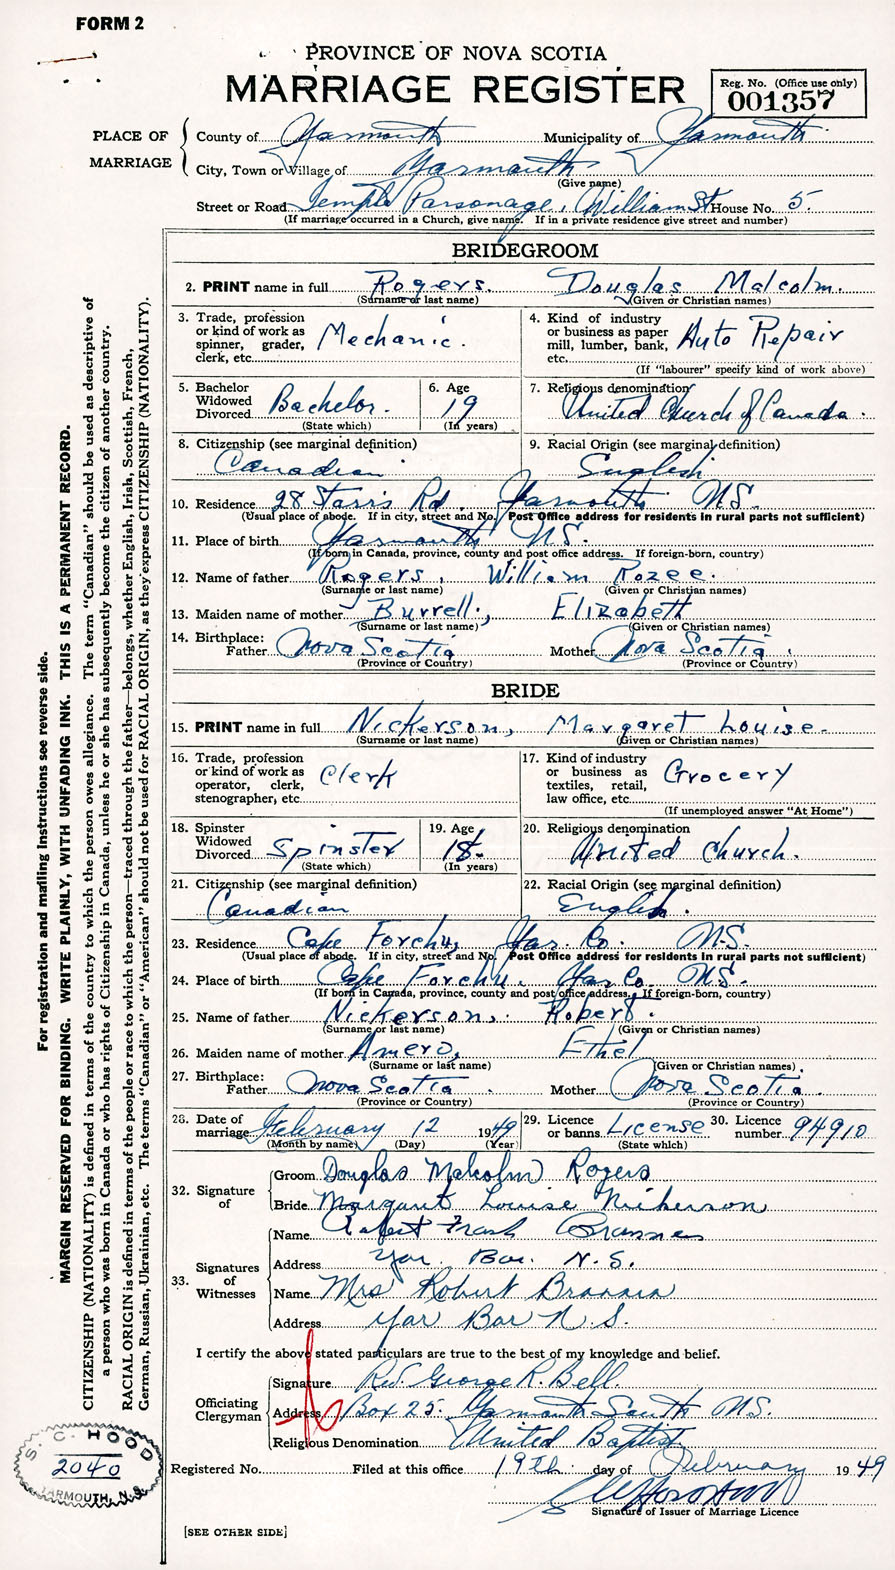 FORM 2
PROVINCE OF NOVA SCOTIA
MARRIAGE REGISTER
Reg. No. (Office use only)
001357
PLACE OF MARRIAGE
County of Yarmouth Municipality of Yarmouth
City, Town or Village of Yarmouth
(Give name)
Street or Road Temple Parsonage, William St House No. 5.
(If marriage occurred in a Church, give name. If in a private residence give street and number)
BRIDEGROOM
2. PRINT name in full Rogers. Douglas Malcolm.
(Surname or last name) (Given or Christian names)
3. Trade, profession or kind of work as spinner, grader, clerk, etc. Mechanic.
4. Kind of industry or business as paper mill, lumber, bank, etc. Auto Repair
(If "labourer" specify kind of work above)
5. Bachelor Widowed Divorced Bachelor.
(State which)
6. Age 19
(In years)
7. Religious denomination
United Church of Canada.
8. Citizenship (see marginal definition)
Canadian
9. Racial Origin (see marginal definition)
English
10. Residence 28 Starrs Rd. Yarmouth N.S.
(Usual place of abode. If in city, street and No. Post Office address for residents in rural parts not sufficient)
11. Place of birth Yarmouth N.S.
(If born in Canada, province, county and post office address. If foreign-born, country)
12. Name of father Rogers, William Rozee.
(Surname or last name) (Given or Christian names)
13. Maiden name of mother Burrell, Elizabeth
(Surname or last name) (Given or Christian names)
14. Birthplace:
Father Nova Scotia Mother Nova Scotia.
(Province or Country) (Province or Country)
BRIDE
15. PRINT name in full Nickerson, Margaret Louise.
(Surname or last name) (Given or Christian names)
16. Trade, profession or kind of work as operator, clerk, stenographer, etc. Clerk
17. Kind of industry or business as textiles, retail, law office, etc. Grocery
(If unemployed answer "At Home")
18. Spinster Widowed Divorced Spinster
(State which)
19. Age 18.
(In years)
20. Religious denomination
United Church.
21. Citizenship (see marginal definition)
Canadian
22. Racial Origin (see marginal definition)
English.
23. Residence Cape Forchu, Yar. Co. N.S.
(Usual place of abode. If in city, street and No. Post Office address for residents in rural parts not sufficient)
24. Place of birth Cape Forchu. Yar Co. N.S.
(If born in Canada, province, county and post office address. If foreign-born, country)
25. Name of father Nickerson, Robert.
(Surname or last name) (Given or Christian names)
26. Maiden name of mother Amero, Ethel
(Surname or last name) (Given or Christian names)
27. Birthplace:
Father Nova Scotia Mother Nova Scotia
(Province or Country) (Province or Country)
28. Date of marriage February 12 1949
(Month by name) (Day) (Year)
29. Licence or banns License
(State which)
30. Licence number 94910
32. Signature of
Groom Douglas Malcolm Rogers
Bride Margaret Louise Nickerson
33. Signatures of Witnesses
Name Robert Frash
Address Yar. Bar. N.S.
Name Mrs Robert
Address Yar Bar N.S.
I certify the above stated particulars are true to the best of my knowledge and belief.
Officiating Clergyman
Signature Rev. George R. Bell.
Address Box 25. Yarmouth South N.S.
Religious Denomination United Baptist
Registered No. Filed at this office 19th day of February 1949
Signature of Issuer of Marriage Licence
[SEE OTHER SIDE]
S. C. HOOD
2040
YARMOUTH, N.S.
For registration and mailing instructions see reverse side.
MARGIN RESERVED FOR BINDING. WRITE PLAINLY, WITH UNFADING INK. THIS IS A PERMANENT RECORD.
CITIZENSHIP (NATIONALITY) is defined in terms of the country to which the person owes allegiance. The term "Canadian" should be used as descriptive of
a person who was born in Canada or who has rights of Citizenship in Canada, unless he or she has subsequently become the citizen of another country.
RACIAL ORIGIN is defined in terms of the people or race to which the person—traced through the father—belongs, whether English, Irish, Scottish, French,
German, Russian, Ukrainian, etc. The terms "Canadian" or "American" should not be used for RACIAL ORIGIN, as they express CITIZENSHIP (NATIONALITY).